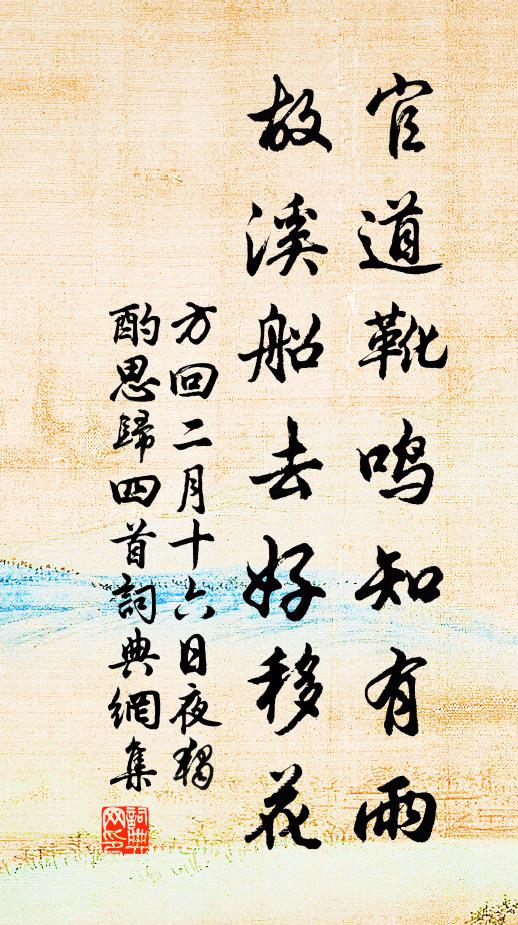 官道靴鸣知有雨
故溪船去好移花
方回二月十六日夜独
酌思歸四首詞典網集
詞典
网印